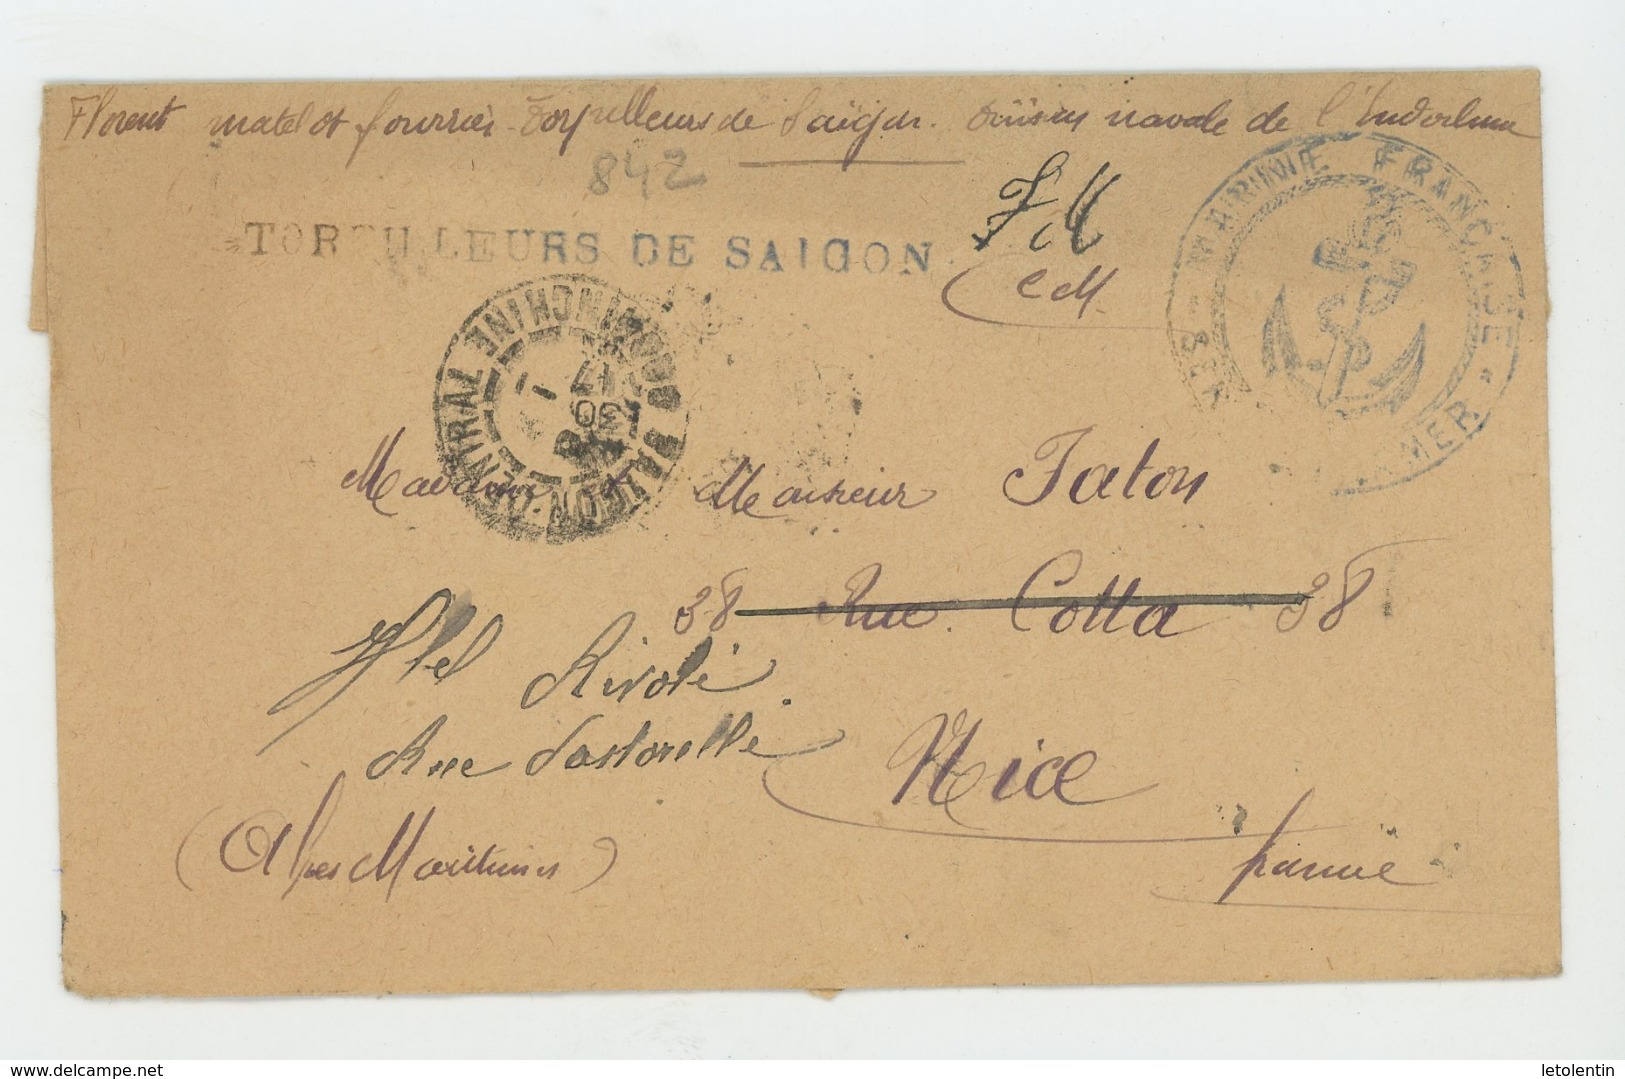 Florent matelot fourrier Torpilleurs de Saïgon. Division navale de l'Indochine
842
TORPILLEURS DE SAIGON
F M
MARINE FRANCAISE
SERVICE A LA MER
SAIGON-CENTRAL COCHINCHINE
30
17
Madame et Monsieur Taton
38 Rue Cotta 38
Htel Rivoli
Rue Pastorelli
Nice
(Alpes Maritimes)
france
delcampe.net
letolentin